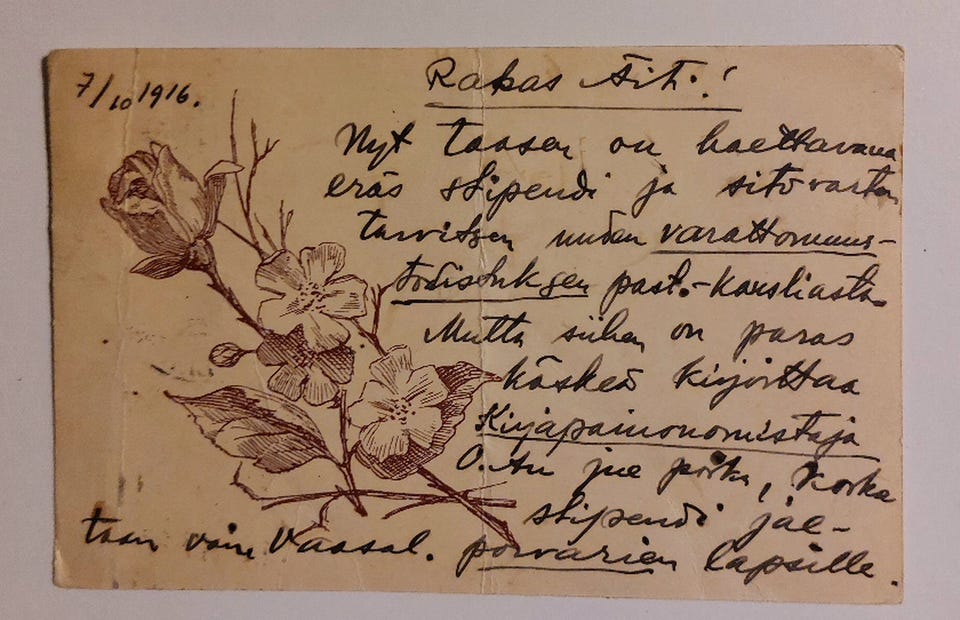 7/10 1916.
Rakas Äiti!
Nyt taasen on haettavana
eräs stipendi ja sitä varten
tarvitsen uuden varattomuus-
todistuksen past.-kansliasta.
Mutta siihen on paras
käskeä kirjoittaa
Kirjapainonomistaja
poika, koska
stipendi jae-
taan vain Vaasal. porvarien lapsille.